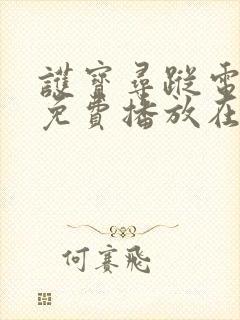 護寶尋蹤電
免費播放在
何賽飛